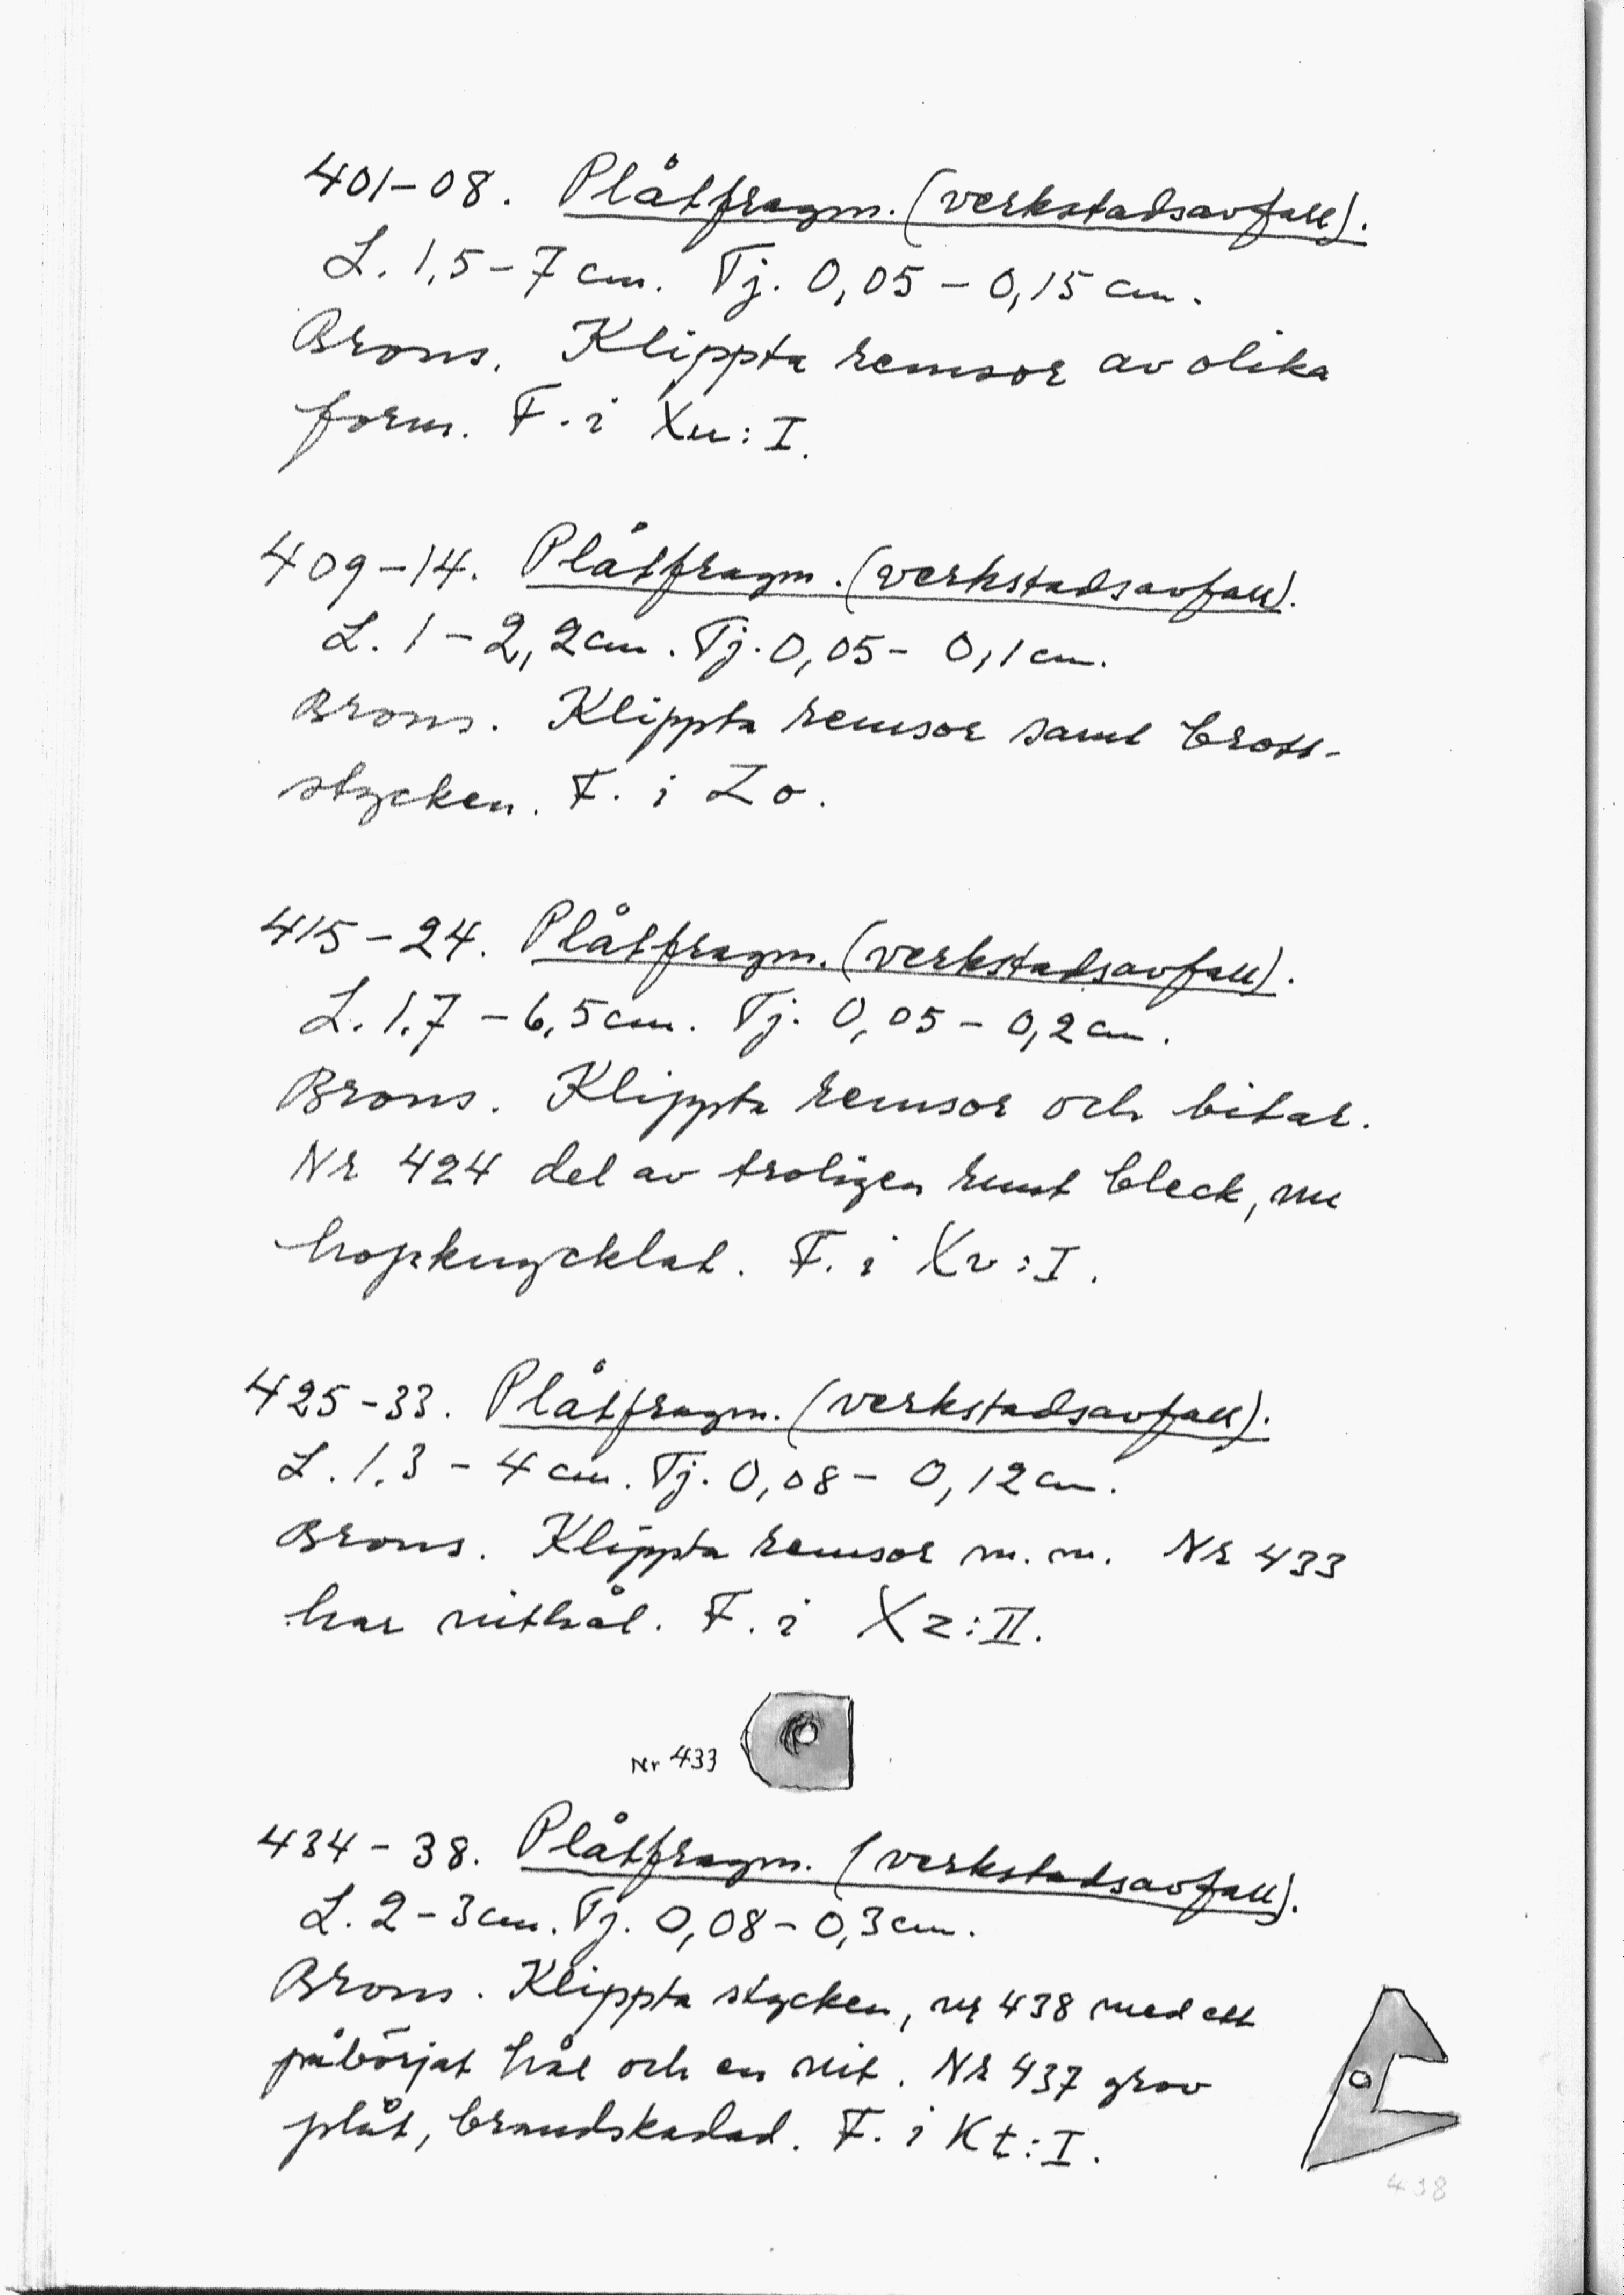 401-08. Plåtfragm. (verkstadsavfall).
L. 1,5-7 cm. Tj. 0,05-0,15 cm.
Brons. Klippta remsor av olika
form. F. i Xu:I.
409-14. Plåtfragm. (verkstadsavfall).
L. 1-2,2 cm. Tj. 0,05-0,1 cm.
Brons. Klippta remsor samt brott-
stycken. F. i Zo.
415-24. Plåtfragm. (verkstadsavfall).
L. 1,7-6,5 cm. Tj. 0,05-0,2 cm.
Brons. Klippta remsor och bitar.
Nr 424 del av troligen runt bleck, nu
hopknycklat. F. i Xv:I.
425-33. Plåtfragm. (verkstadsavfall).
L. 1,3-4 cm. Tj. 0,08-0,12 cm.
Brons. Klippta remsor m.m. Nr 433
har nithål. F. i Xz:II.
Nr 433
434-38. Plåtfragm. (verkstadsavfall).
L. 2-3 cm. Tj. 0,08-0,3 cm.
Brons. Klippta stycken, nr 438 med ett
påbörjat hål och en nit. Nr 437 grov
plåt, brandskadad. F. i Kt:I.
438